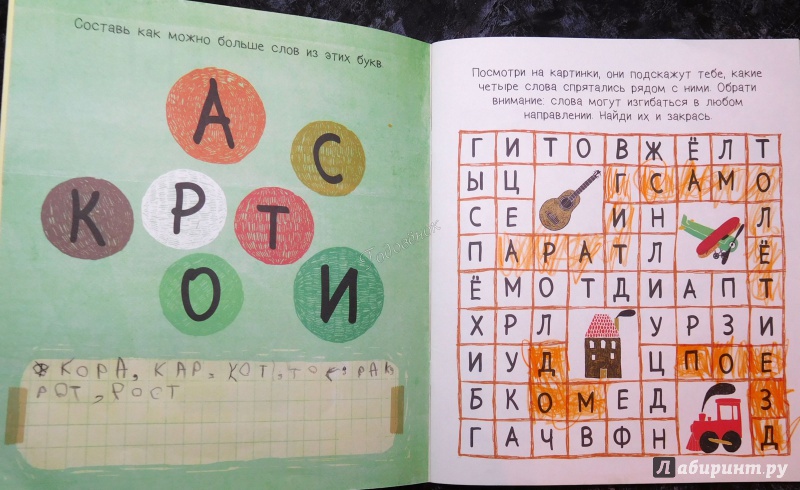 Составь как можно больше слов из этих букв.
А
С
К Р Т
О И
КОРА, КАР, КОТ, ТОК, РАК
РОТ, РОСТ
Посмотри на картинки, они подскажут тебе, какие
четыре слова спрятались рядом с ними. Обрати
внимание: слова могут изгибаться в любом
направлении. Найди их и закрась.
Г И Т О В Ж Ё Л Т
Ы Ц Г С А М О
С Е И Н Л
П А Р А Т Л Ё
Ё М О Т Д И А П Т
Х Р Л У Р З И
И У Д Ц П О Е
Б К О М Е Д З
Г А Ч В Ф Н Д
Лабиринт.ру